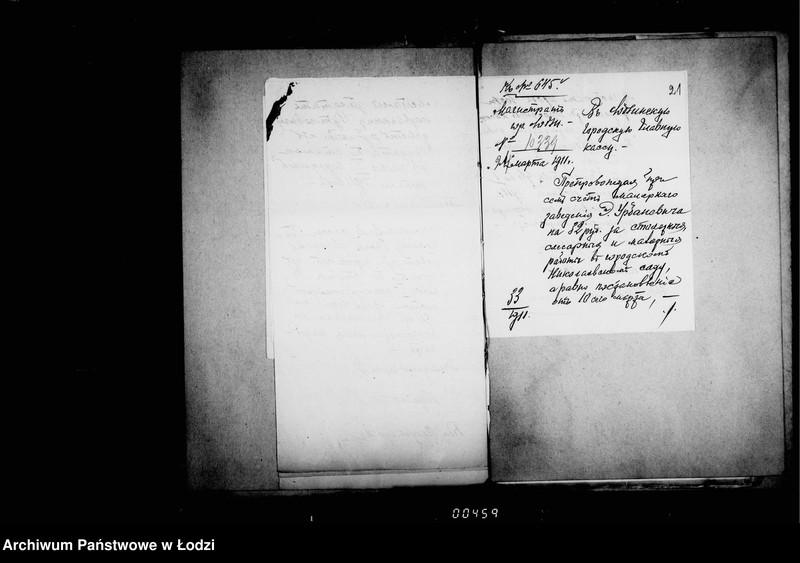 Къ № 645.
91
Магистратъ
гор. Лодзи. –
№ 10339
Марта 1911 г.
Въ Лодзинскую
Городскую Главную
кассу. –
Препровождая при
семъ счетъ малярнаго
заведенія Э. Урбановича
на 82 руб. за столярныя,
слесарныя и малярныя
работы въ городскомъ
Николаевскомъ саду,
а равно постановленіе
отъ 10 сего марта,
33
1911.
00459
Archiwum Państwowe w Łodzi